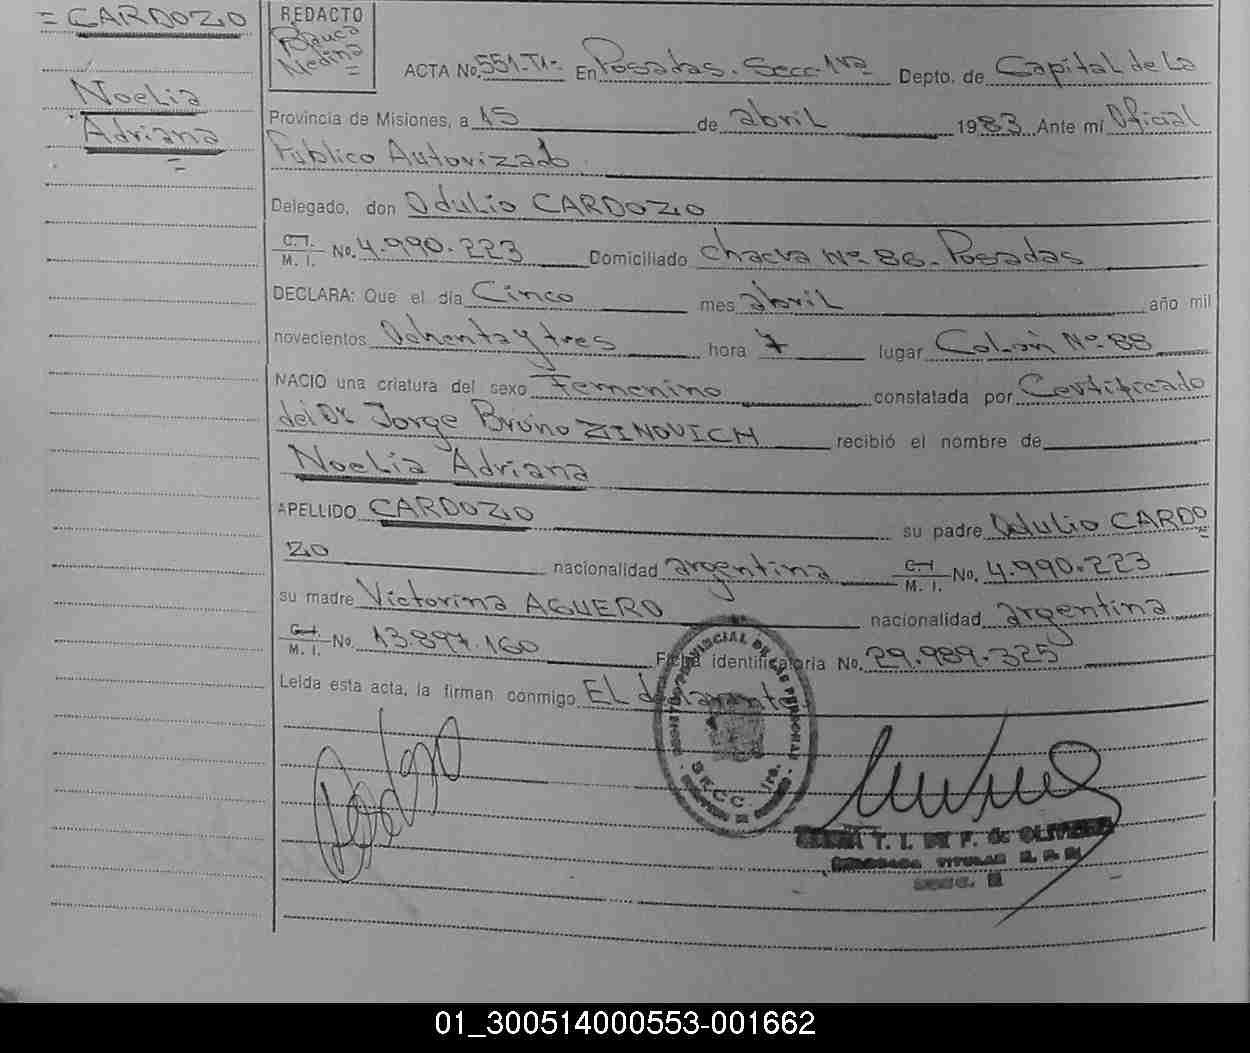 = CARDOZO
Noelia
Adriana
=
REDACTO
Blanca
Medina
=
ACTA No. 551-TI- En Posadas. Secc. 1ra Depto. de Capital de La
Provincia de Misiones, a 15 de abril 1983 Ante mí Oficial
Público Autorizado
Delegado, don Odulio CARDOZO
C.I.
M. I. No. 4.990.223 Domiciliado Chacra Nº 86- Posadas
DECLARA: Que el día Cinco mes abril año mil
novecientos Ochenta y tres hora 7 lugar Colón Nº 88
NACIO una criatura del sexo Femenino constatada por Certificado
del Dr Jorge Bruno ZINOVICH recibió el nombre de
Noelia Adriana
APELLIDO CARDOZO su padre Odulio CARDO
ZO nacionalidad argentina C.I.
M. I. No. 4.990.223
su madre Victorina AGUERO nacionalidad argentina
C.I.
M. I. No. 13.897.160 Ficha identificatoria No. 29.989.325
Leída esta acta, la firman conmigo EL declarante
PROVINCIAL DE LAS PERSONAS
S.R.C.C. 1ra.
T. I. DE F. de OLIVERA
TITULAR
01_300514000553-001662